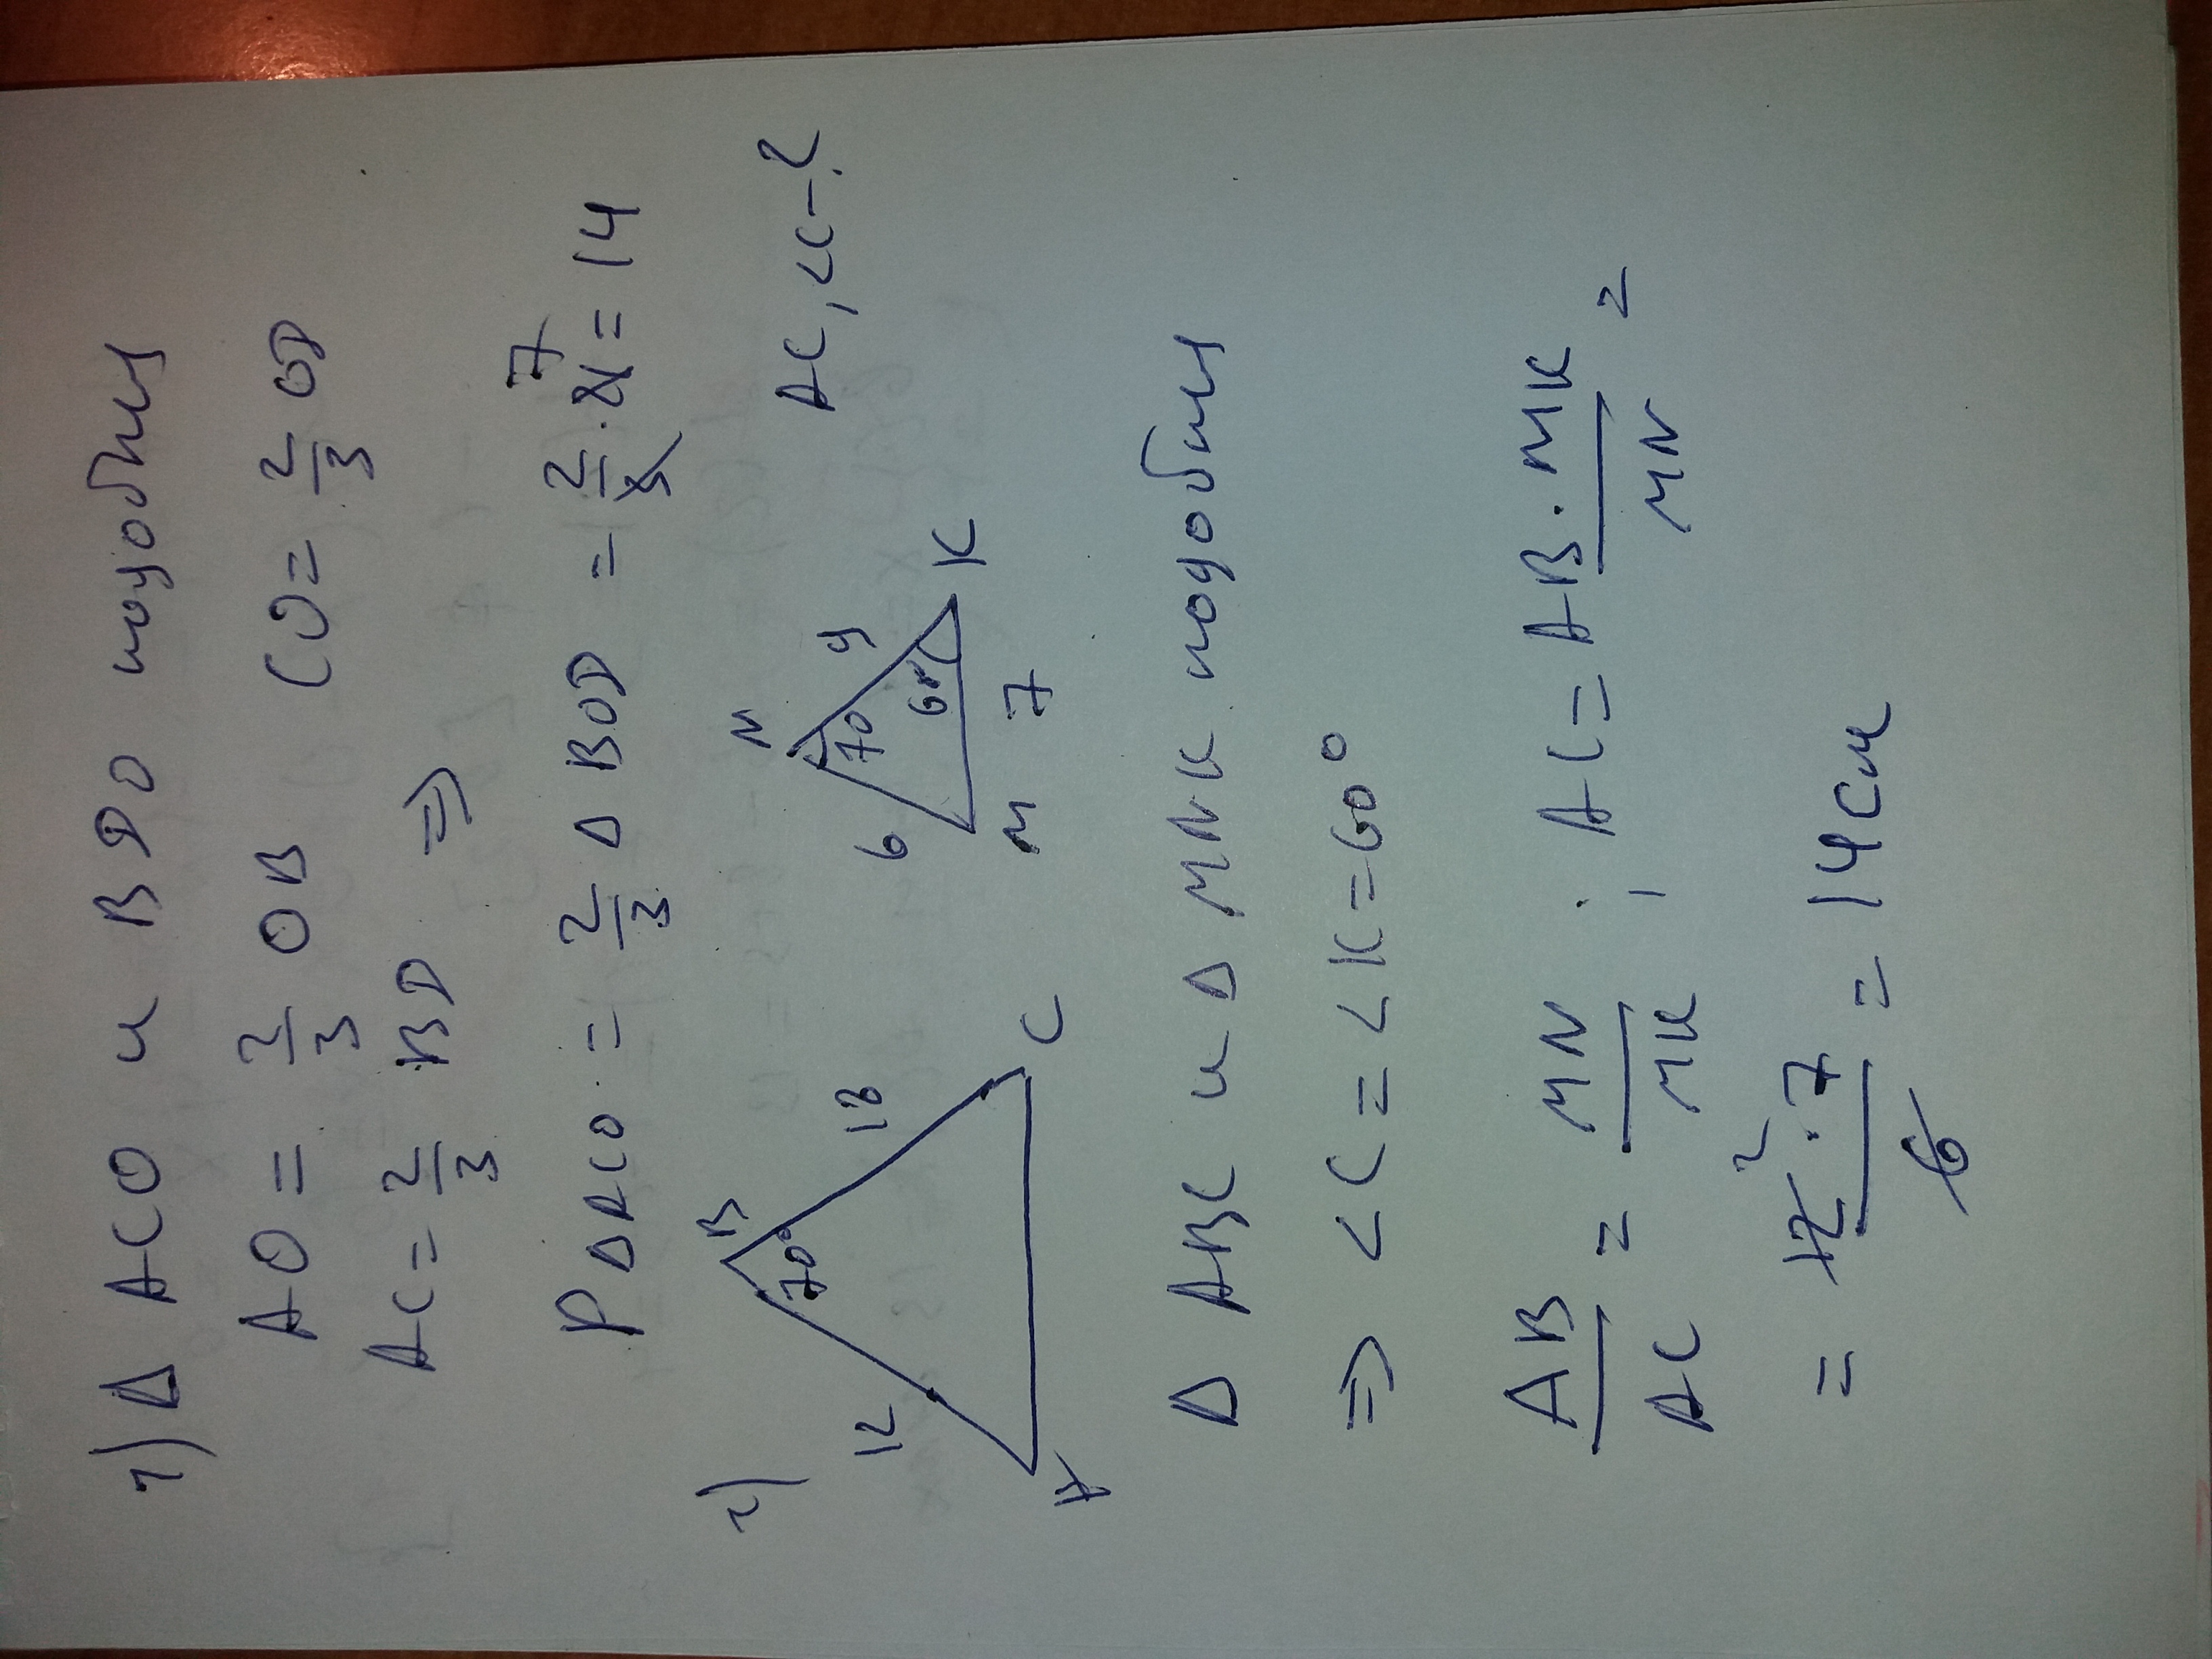 1) Δ ACO и BDO подобны
AO = 2/3 OB CO = 2/3 OD
AC = 2/3 BD ⇒
P Δ ACO = 2/3 Δ BOD = 2/3 · 21 = 14
7
2) AC, <C-?
B 70° 12 18 A C
N 70 6 9 60° M 7 K
Δ ABC и Δ MNK подобны
⇒ <C = <K = 60°
AB/AC = MN/MK ; AC = AB · MK/MN =
= 12 · 7/6 = 14 см
2